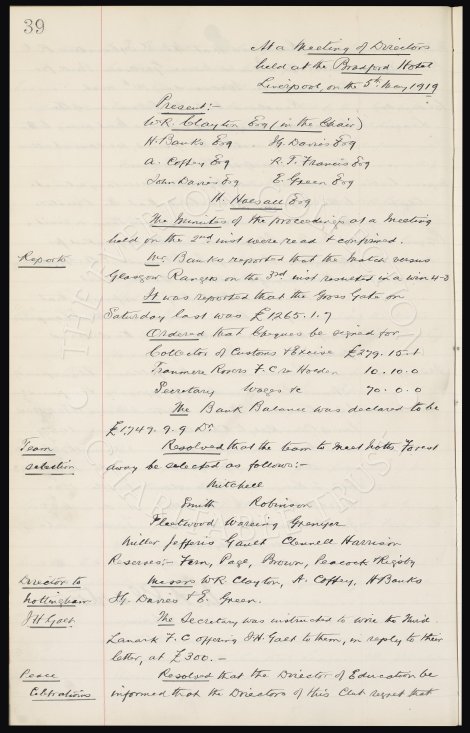 39
At a Meeting of Directors
held at the Bradford Hotel
Liverpool, on the 5th May 1919
Present:-
W.R. Clayton Esq (in the Chair)
H. Banks Esq J.G. Davies Esq
A. Coffey Esq R.T. Francis Esq
John Davies Esq E. Green Esq
H. Halsall Esq
The Minutes of the proceedings at a Meeting
held on the 2nd inst were read & confirmed.
Reports Mr. Banks reported that the Match versus
Glasgow Rangers on the 3rd inst resulted in a win 4-3
It was reported that the Gross Gate on
Saturday last was £1265.1.7
Ordered that Cheques be signed for
Collector of Customs & Excise £279.15.1
Tranmere Rovers F.C re Holden 10.10.0
Secretary Wages &c 70.0.0
The Bank Balance was declared to be
£1,747.9.9 Dr
Team Resolved that the team to meet Notts Forest
selection away be selected as follows:-
Mitchell
Smith Robinson
Fleetwood Wareing Grenyer
Miller Jefferis Gault Clennell Harrison
Reserves:- Fern, Page, Brown, Peacock & Rigby
Director to Messrs W.R. Clayton, A. Coffey, H Banks
Nottingham J.G. Davies & E. Green.
J.H Galt. The Secretary was instructed to wire the Mid.
Lanark F.C offering J.H Galt to them, in reply to their
letter, at £300.-
Peace Resolved that the Director of Education be
Celebrations informed that the Directors of this Club regret that